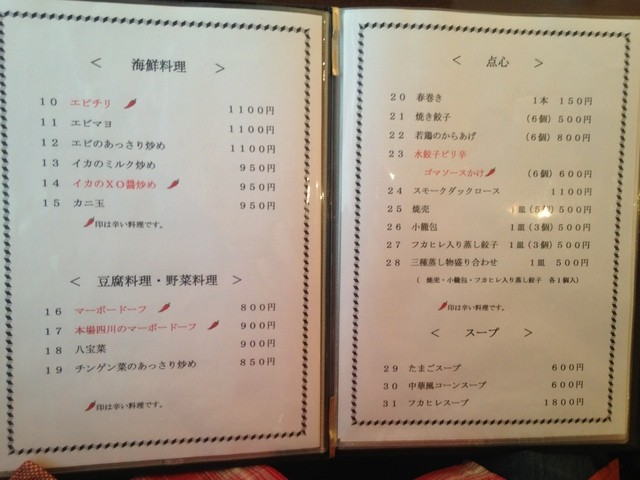 ＜ 海鮮料理 ＞
10 エビチリ 1100円
11 エビマヨ 1100円
12 エビのあっさり炒め 1100円
13 イカのミルク炒め 950円
14 イカのXO醤炒め 950円
15 カニ玉 950円
印は辛い料理です。
＜ 豆腐料理・野菜料理 ＞
16 マーボードーフ 800円
17 本場四川のマーボードーフ 900円
18 八宝菜 900円
19 チンゲン菜のあっさり炒め 850円
印は辛い料理です。
＜ 点心 ＞
20 春巻き 1本 150円
21 焼き餃子 (6個) 500円
22 若鶏のからあげ (6個) 800円
23 水餃子ピリ辛
ゴマソースかけ (6個) 600円
24 スモークダックロース 1100円
25 焼売 1皿 (5個) 500円
26 小籠包 1皿 (3個) 500円
27 フカヒレ入り蒸し餃子 1皿 (3個) 500円
28 三種蒸し物盛り合わせ 1皿 500円
( 焼売・小籠包・フカヒレ入り蒸し餃子 各1個入)
印は辛い料理です。
＜ スープ ＞
29 たまごスープ 600円
30 中華風コーンスープ 600円
31 フカヒレスープ 1800円